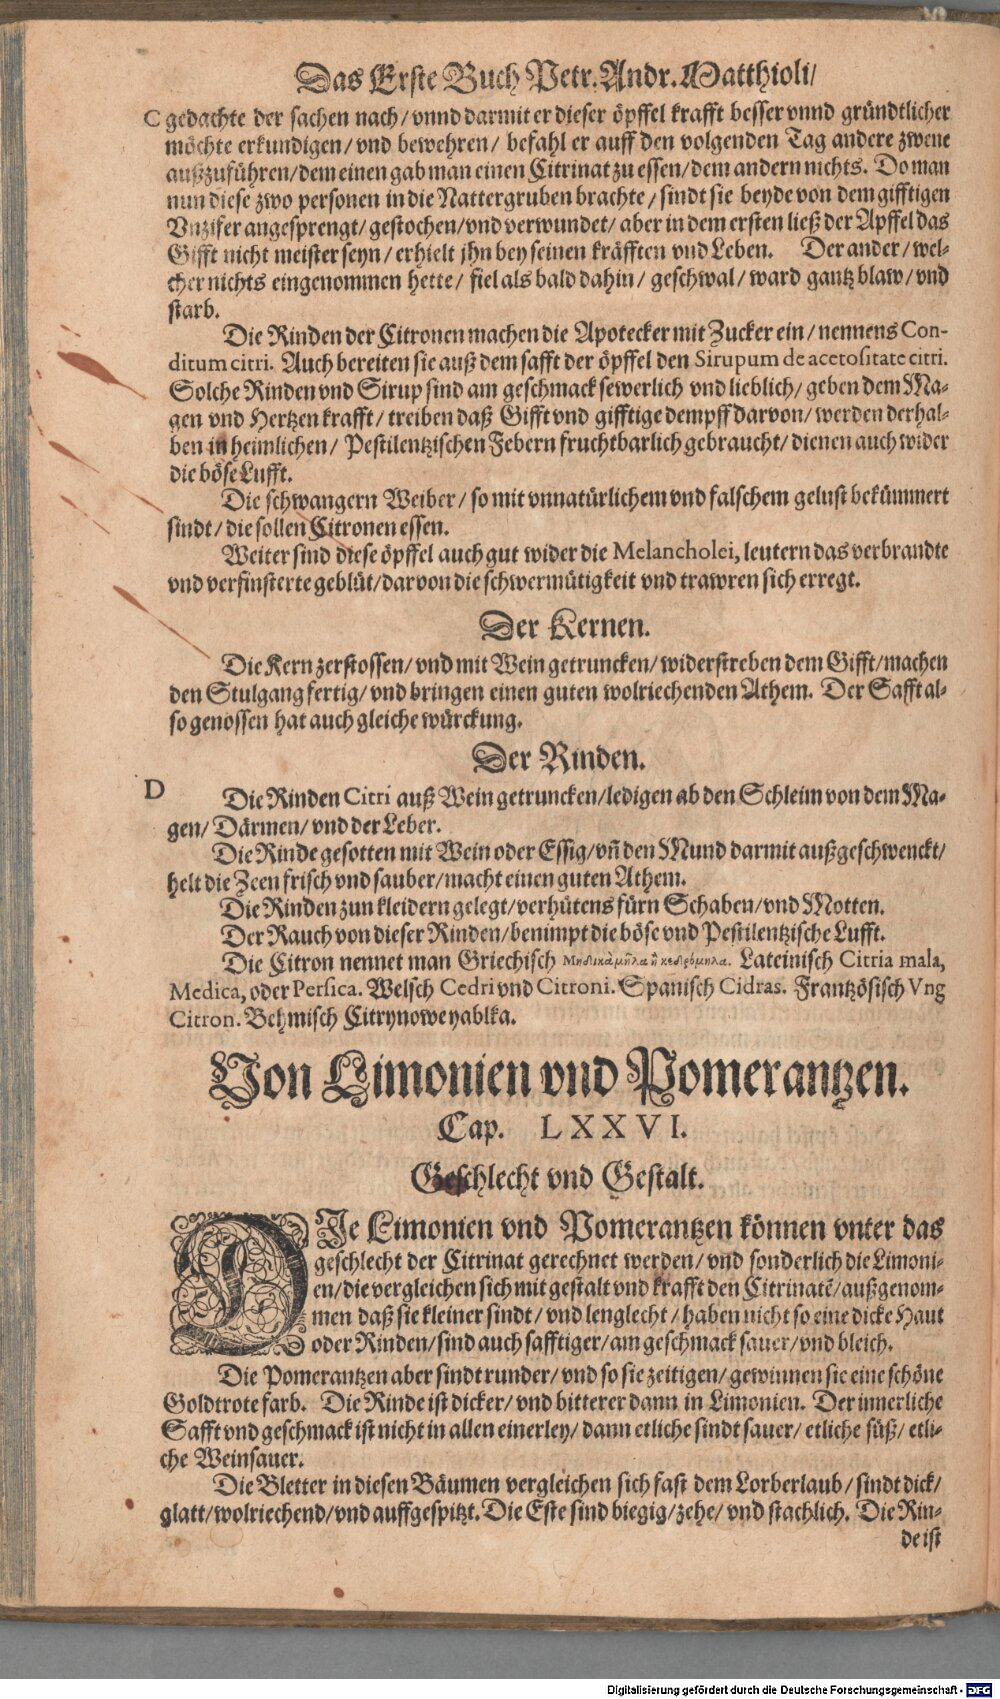 Das Erste Buch Petr. Andr. Matthioli/
C gedachte der sachen nach/ vnnd darmit er dieser öpffel krafft besser vnnd gründtlicher
möchte erkundigen/ vnd bewehren/ befahl er auff den volgenden Tag andere zwene
außzuführen/ dem einen gab man einen Citrinat zu essen/ dem andern nichts. Do man
nun diese zwo personen in die Nattergruben brachte/ sindt sie beyde von dem gifftigen
Vnzifer angesprengt/ gestochen/ vnd verwundet/ aber in dem ersten ließ der Apffel das
Gifft nicht meister seyn/ erhielt jhn bey seinen kräfften vnd Leben. Der ander/ wel-
cher nichts eingenommen hette/ fiel als bald dahin/ geschwal/ ward gantz blaw/ vnd
starb.
Die Rinden der Citronen machen die Apotecker mit Zucker ein/ nennens Con-
ditum citri. Auch bereiten sie auß dem safft der öpffel den Sirupum de acetositate citri.
Solche Rinden vnd Sirup sind am geschmack sewerlich vnd lieblich/ geben dem Ma-
gen vnd Hertzen krafft/ treiben daß Gifft vnd gifftige dempff darvon/ werden derhal-
ben in heimlichen/ Pestilentzischen Febern fruchtbarlich gebraucht/ dienen auch wider
die böse Lufft.
Die schwangern Weiber/ so mit vnnatürlichem vnd falschem gelust bekümmert
sindt/ die sollen Citronen essen.
Weiter sind diese öpffel auch gut wider die Melancholei, leutern das verbrandte
vnd verfinsterte geblüt/ darvon die schwermütigkeit vnd trawren sich erregt.
Der Kernen.
Die Kern zerstossen/ vnd mit Wein getruncken/ widerstreben dem Gifft/ machen
den Stulgang fertig/ vnd bringen einen guten wolriechenden Athem. Der Safft al-
so genossen hat auch gleiche würckung.
Der Rinden.
D Die Rinden Citri auß Wein getruncken/ ledigen ab den Schleim von dem Ma-
gen/ Därmen/ vnd der Leber.
Die Rinde gesotten mit Wein oder Essig/ vñ den Mund darmit außgeschwenckt/
helt die Zeen frisch vnd sauber/ macht einen guten Athem.
Die Rinden zun kleidern gelegt/ verhütens fürn Schaben/ vnd Motten.
Der Rauch von dieser Rinden/ benimpt die böse vnd Pestilentzische Lufft.
Die Citron nennet man Griechisch Μηδικὰ μῆλα ἢ κεδρόμηλα. Lateinisch Citria mala,
Medica, oder Persica. Welsch Cedri vnd Citroni. Spanisch Cidras. Frantzösisch Vng
Citron. Behmisch Citrynowe yablka.
Von Limonien vnd Pomerantzen.
Cap. LXXVI.
Geschlecht vnd Gestalt.
DJe Limonien vnd Pomerantzen können vnter das
geschlecht der Citrinat gerechnet werden/ vnd sonderlich die Limoni-
en/ die vergleichen sich mit gestalt vnd krafft den Citrinatē/ außgenom-
men daß sie kleiner sindt/ vnd lenglecht/ haben nicht so eine dicke Haut
oder Rinden/ sind auch safftiger/ am geschmack sauer/ vnd bleich.
Die Pomerantzen aber sindt runder/ vnd so sie zeitigen/ gewinnen sie eine schöne
Goldtrote farb. Die Rinde ist dicker/ vnd bitterer dann in Limonien. Der innerliche
Safft vnd geschmack ist nicht in allen einerley/ dann etliche sindt sauer/ etliche süß/ etli-
che Weinsauer.
Die Bletter in diesen Bäumen vergleichen sich fast dem Lorberlaub/ sindt dick/
glatt/ wolriechend/ vnd auffgespitzt. Die Este sind biegig/ zehe/ vnd stachlich. Die Rin-
de ist
Digitalisierung gefördert durch die Deutsche Forschungsgemeinschaft - DFG